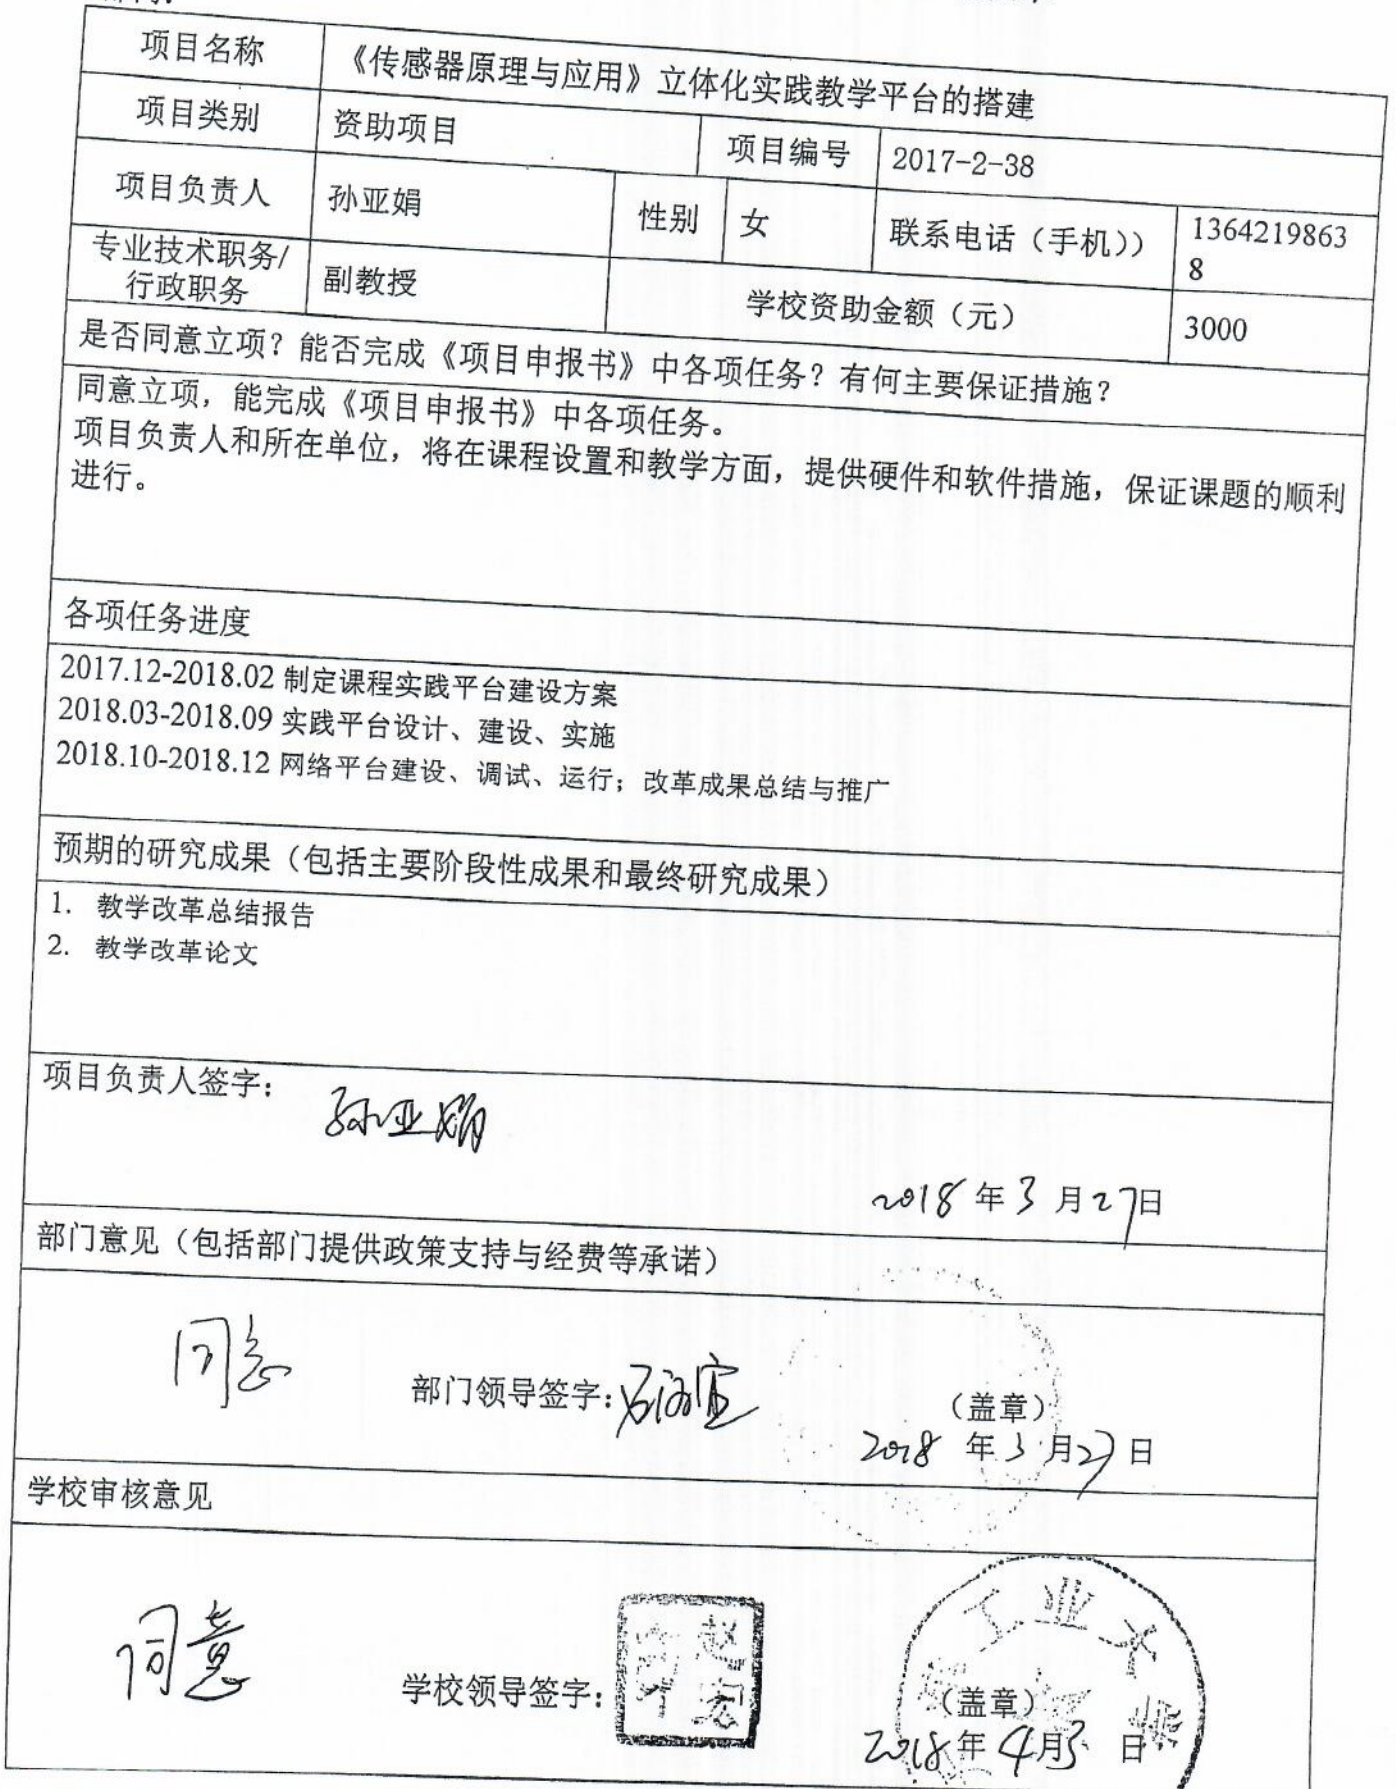 项目名称 《传感器原理与应用》立体化实践教学平台的搭建
项目类别 资助项目 项目编号 2017-2-38
项目负责人 孙亚娟 性别 女 联系电话（手机）） 1364219863
8
专业技术职务/
行政职务 副教授 学校资助金额（元） 3000
是否同意立项？能否完成《项目申报书》中各项任务？有何主要保证措施？
同意立项，能完成《项目申报书》中各项任务。
项目负责人和所在单位，将在课程设置和教学方面，提供硬件和软件措施，保证课题的顺利
进行。
各项任务进度
2017.12-2018.02 制定课程实践平台建设方案
2018.03-2018.09 实践平台设计、建设、实施
2018.10-2018.12 网络平台建设、调试、运行；改革成果总结与推广
预期的研究成果（包括主要阶段性成果和最终研究成果）
1. 教学改革总结报告
2. 教学改革论文
项目负责人签字： 孙亚娟
2018 年 3 月 27 日
部门意见（包括部门提供政策支持与经费等承诺）
同意 部门领导签字： （盖章）
2018 年 3 月 27 日
学校审核意见
同意 学校领导签字： （盖章）
工业大学
2018 年 4 月 3 日